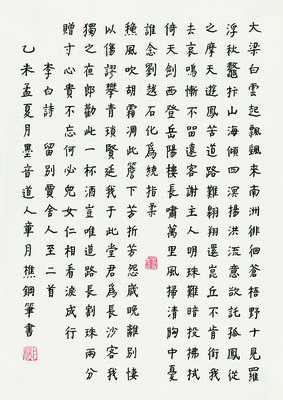 大梁白雲起飄颻來南洲徘徊蒼梧野十見羅
浮秋鰲抃山海傾四溟揚洪流意欲託孤鳳從
之摩天遊鳳苦道路難翱翔還崑丘不肯銜我
去哀鳴慚不周遠客謝主人明珠難暗投拂拭
倚天劍西登岳陽樓長嘯萬里風掃清胸中憂
誰念劉越石化為繞指柔
秋風吹胡霜凋此簷下芳折芳怨歲晚離別悽
以傷謬攀青瑣賢延我於此堂君為長沙客我
獨之夜郎勸此一杯酒豈唯道路長割珠兩分
贈寸心貴不忘何必兒女仁相看淚成行
李白詩 留別賈舍人至二首
乙未孟夏月墨音道人章月樵鋼筆書